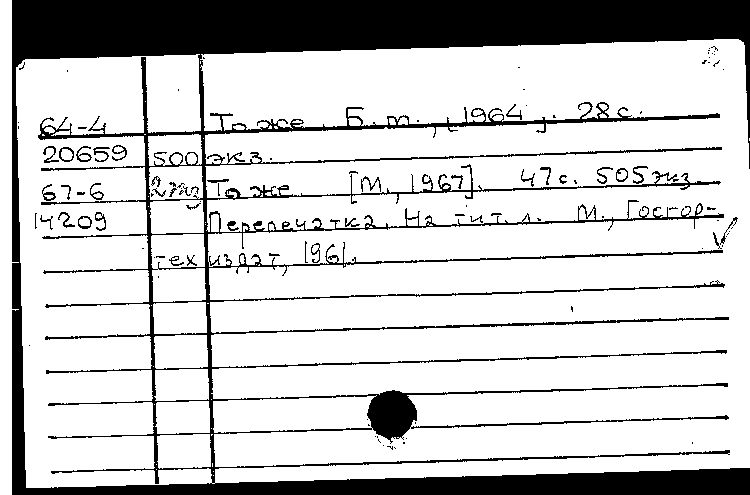 2
64-4 То же. Б.т., [1964]. 28 с.
20659 500 экз.
67-6 2 экз То же [М., 1967]. 47 с. 505 экз.
14209 Перепечатка. На тит. л. М., Госгор-
тех издат, 1961.